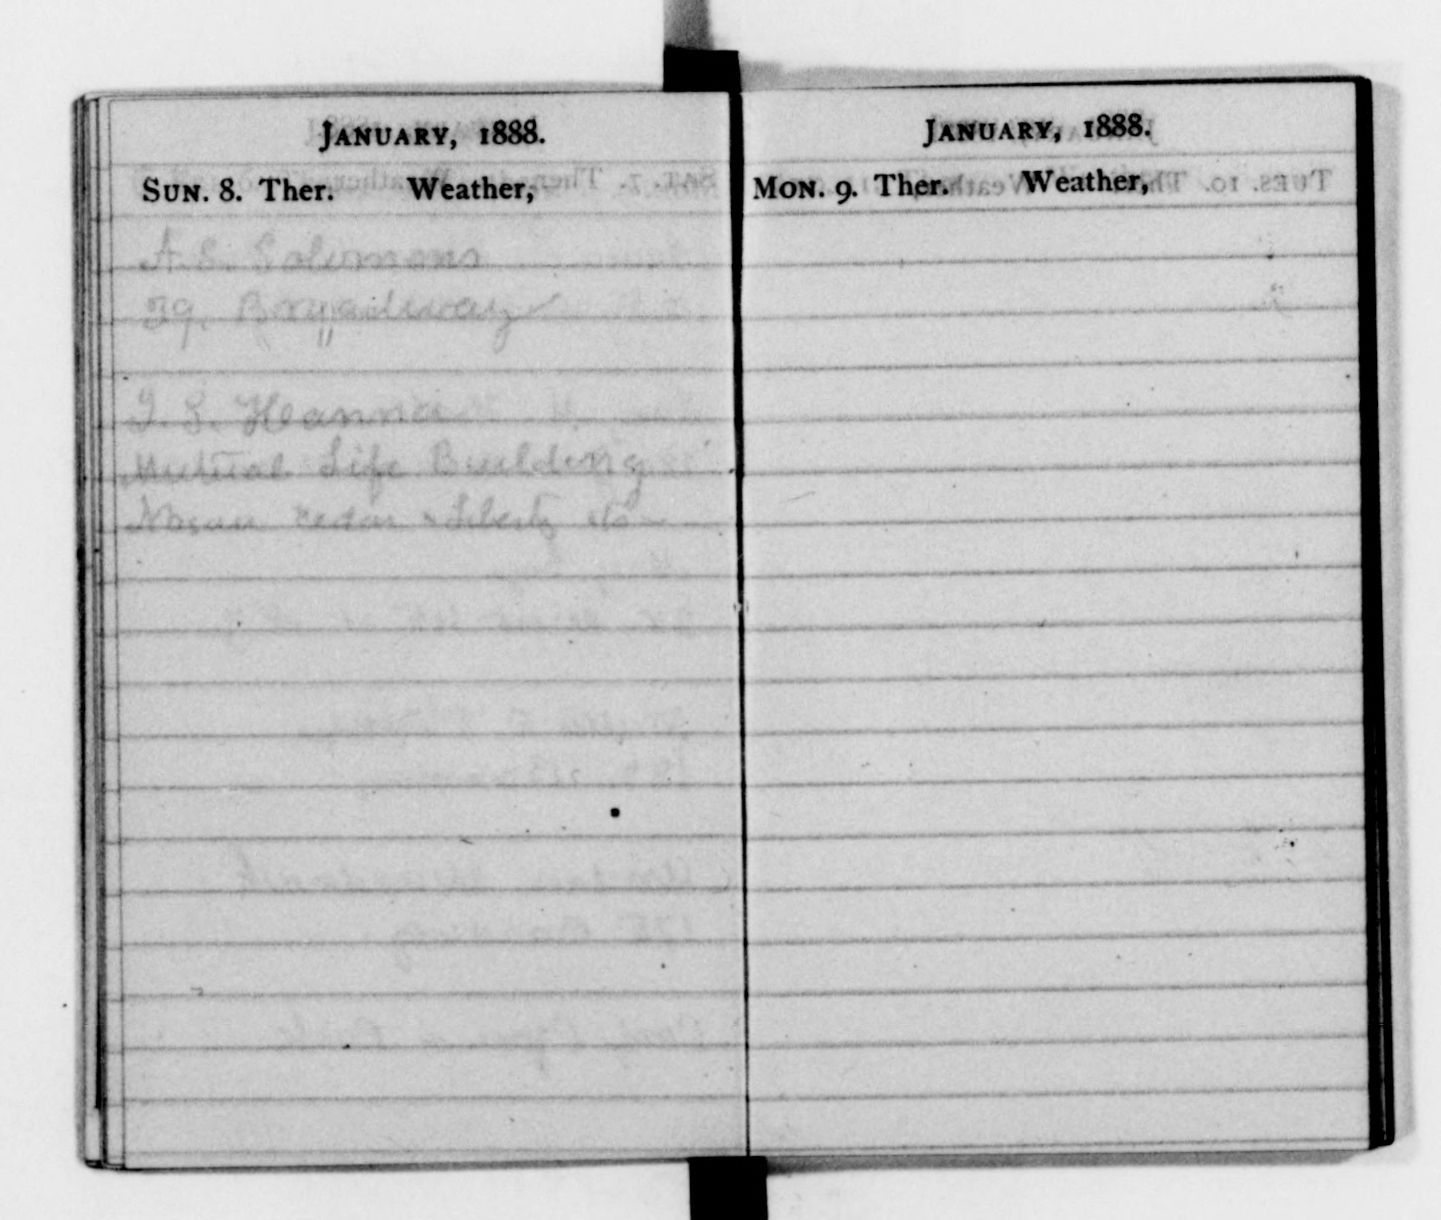 JANUARY, 1888.
SUN. 8. Ther. Weather,
A. S. Solomons
59. Broadway
J. S. Hanna
Mutual Life Building
Nassau Cedar & Liberty sts
JANUARY, 1888.
MON. 9. Ther. Weather,